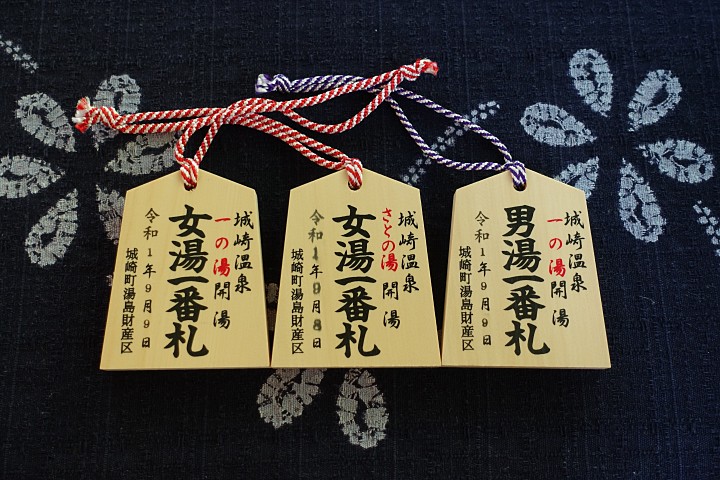 城崎温泉
一の湯開湯
女湯一番札
令和1年9月9日
城崎町湯島財産区
城崎温泉
さとの湯開湯
女湯一番札
令和1年9月8日
城崎町湯島財産区
城崎温泉
一の湯開湯
男湯一番札
令和1年9月9日
城崎町湯島財産区